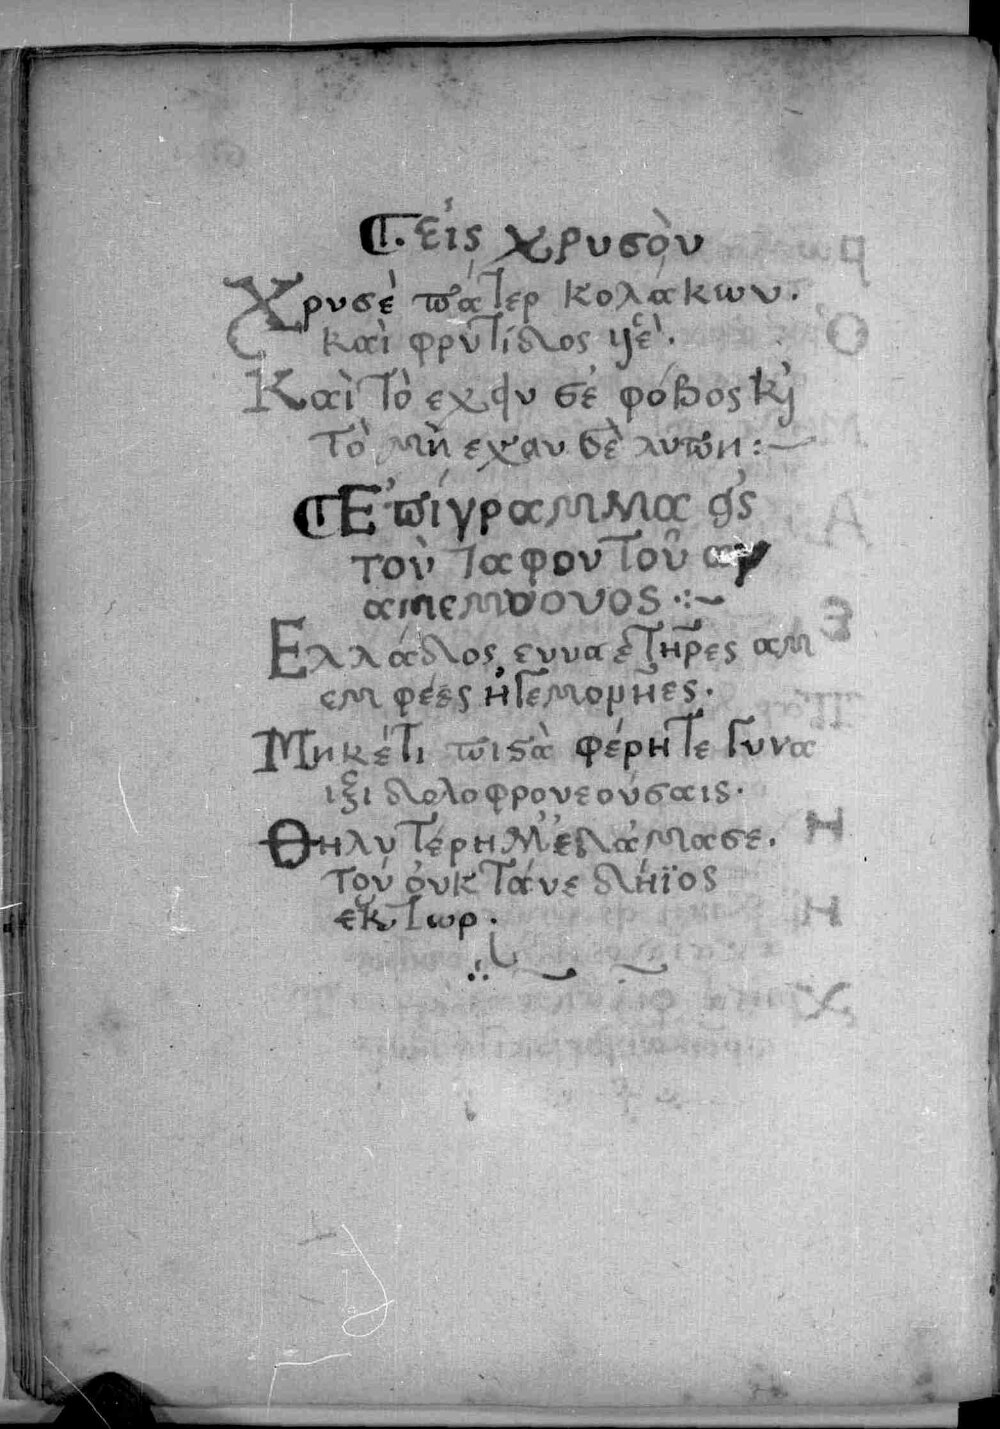 Εἰς χρυσὸν
Χρυσὲ πάτερ κολάκων.
καὶ φρυτίδος ὑιὲ.
Καὶ τὸ εχειν σέ φόβος κὶ
τὸ μὴ εχειν σὲ λυπη :~
Ἐπίγραμμα εἰς
τοὺ ταφου τοῦ αγ
αμεμνονος .:~
Ελλάδος ευναέτῆρες αμ
εμφέες ἡγεμομῆες.
Μηκέτι πισὰ φέρητε γυνα
ιξι δολοφρονεούσαις.
Θηλυτέρη μ' εδάμασε.
τοὺ οὐκ τάνε δήϊος
εκτωρ.